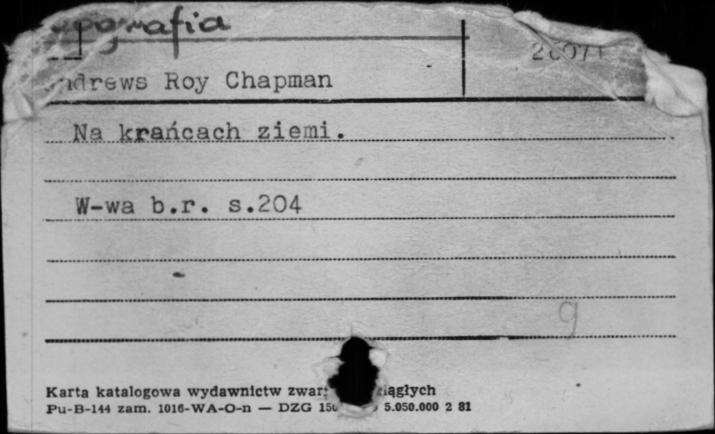 ografia
ndrews Roy Chapman
Na krańcach ziemi.
W-wa b.r. s.204
g
Karta katalogowa wydawnictw zwar iągłych
Pu-B-144 zam. 1016-WA-O-n — DZG 5.050.000 2 81